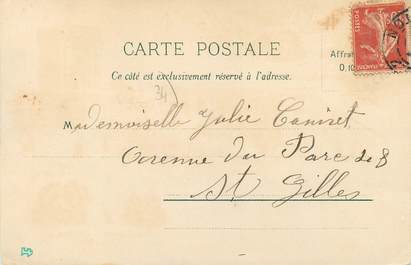 CARTE POSTALE
Ce côté est exclusivement réservé à l'adresse.
Affran
0.10
34
Mademoiselle Julie Caniset
Avenue du Parc de 8
St Gilles